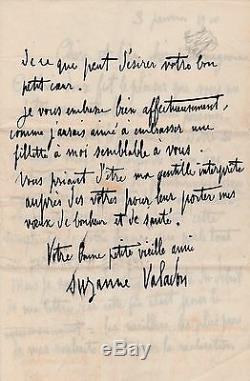 de ce que peut désirer votre bon
petit cœur.
je vous embrasse bien affectueusement,
comme j'aurais aimé a embrasser une
fillette à moi semblable à vous.
Vous priant d'être ma gentille interprète
auprès des vôtres pour leur porter mes
vœux de bonheur et de santé.
Votre bonne petite vieille amie
Suzanne Valadon